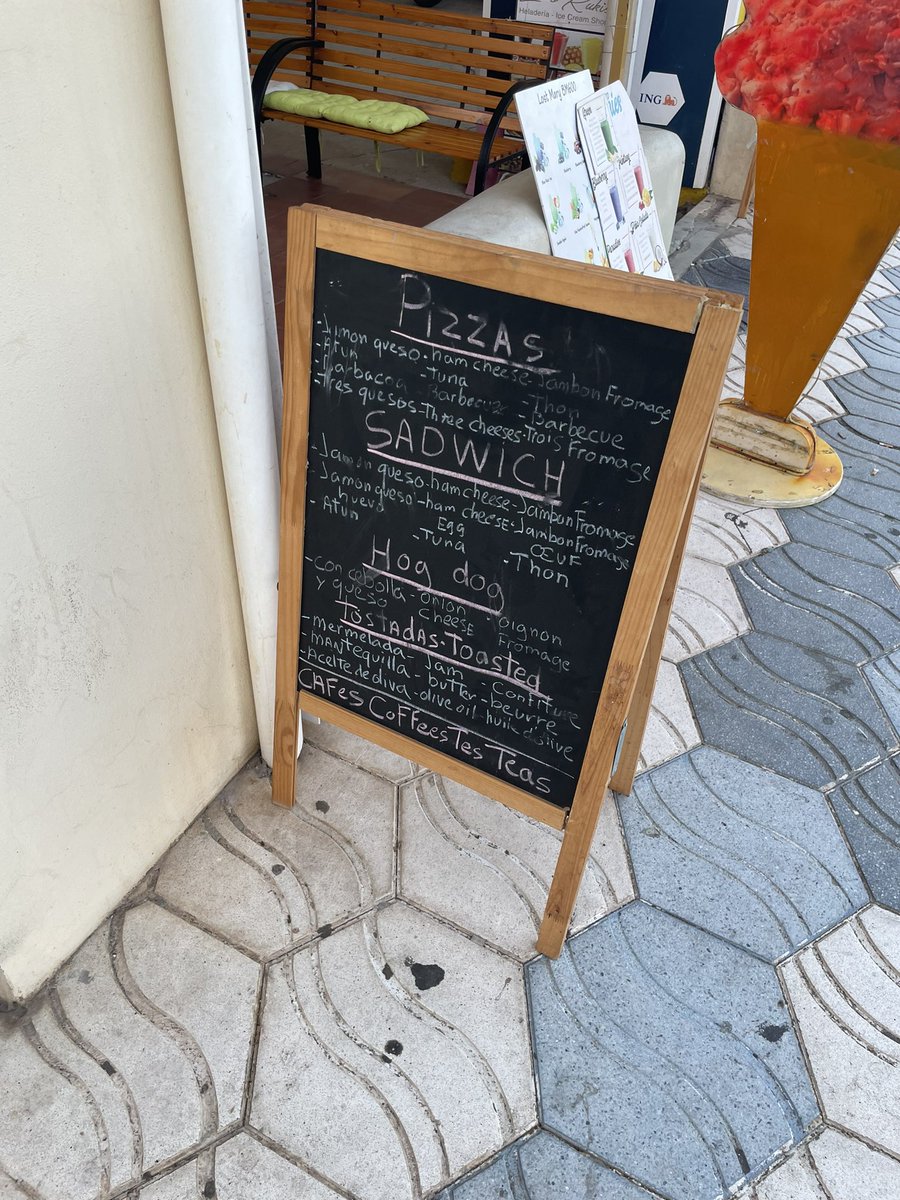 Heladería - Ice Cream Shop
ING
Lost Mary BM600
PizzAS
-Jamon queso-ham cheese-Jambon Fromage
-Atun -Tuna -Thon
-Barbacoa -Barbecue -Barbecue
-Tres quesos-Three cheeses-Trois Fromage
SADWICH
-Jamon queso-ham cheese-Jambon Fromage
-Jamon queso-ham cheese-Jambon Fromage
huevo Egg ŒUF
-Atun -Tuna -Thon
Hog dog
-Con cebolla-onion -oignon
y queso cheese Fromage
TOSTADAS-Toasted
-mermelada-Jam-confiture
-MANTequilla-butter-beurre
-Aceite de oliva-olive oil-huile d'olive
CAFes CoFFees Tes Teas